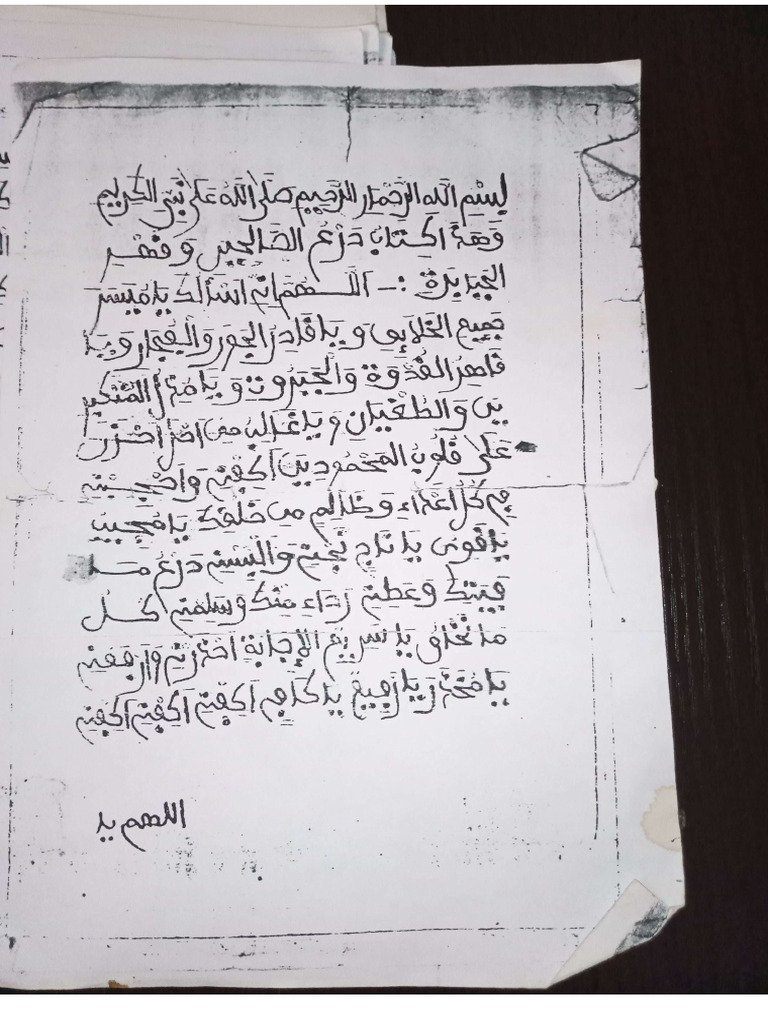 بِسْمِ اللَّهِ الرَّحْمَانِ الرَّحِيمِ صَلَّى اللَّهُ عَلَى نَبِيِّ الْكَرِيمِ
وَهَذَا كِتَابُ دَرْعُ الصَّالِحِينَ وَقَهْرِ
الْجَبَابِرَةِ :- اللهُمَّ إِنِّي أَسْأَلُكَ يَا مُيَسِّرَ
جَمِيعِ الْخَلَائِقِ وَيَا قَادِرُ الْجَوْرِ وَالْفُجَّارِ وَيَا
قَاهِرُ الْقُدْوَةِ وَالْجَبَرُوتِ وَيَا مُذِلَّ الْمُتَكَبِّرِ
ينَ وَالطُّغْيَانِ وَيَا غَالِبُ مِنْ
عَلَى قُلُوبِ الْمَحْمُودِينَ اكْفِنِي
مِنْ كُلِّ أَعْدَاءِ وَظَالِمٍ مِنْ خَلْقِكَ يَا مُجِيبُ
يَا قَوِيُّ يَا نَاجِ نَجِّنِي وَأَلْبِسْنِي دَرْعَ
وَعَطِنِي رِدَاءَ مِنْكَ وَسَلِّمْنِي كُلِّ
مَا نَخَافُ يَا سَرِيعَ الْإِجَابَةِ وَارْفَعْنِي
يَا كَافِي اكْفِنِي اكْفِنِي اكْفِنِي
اللهم يا